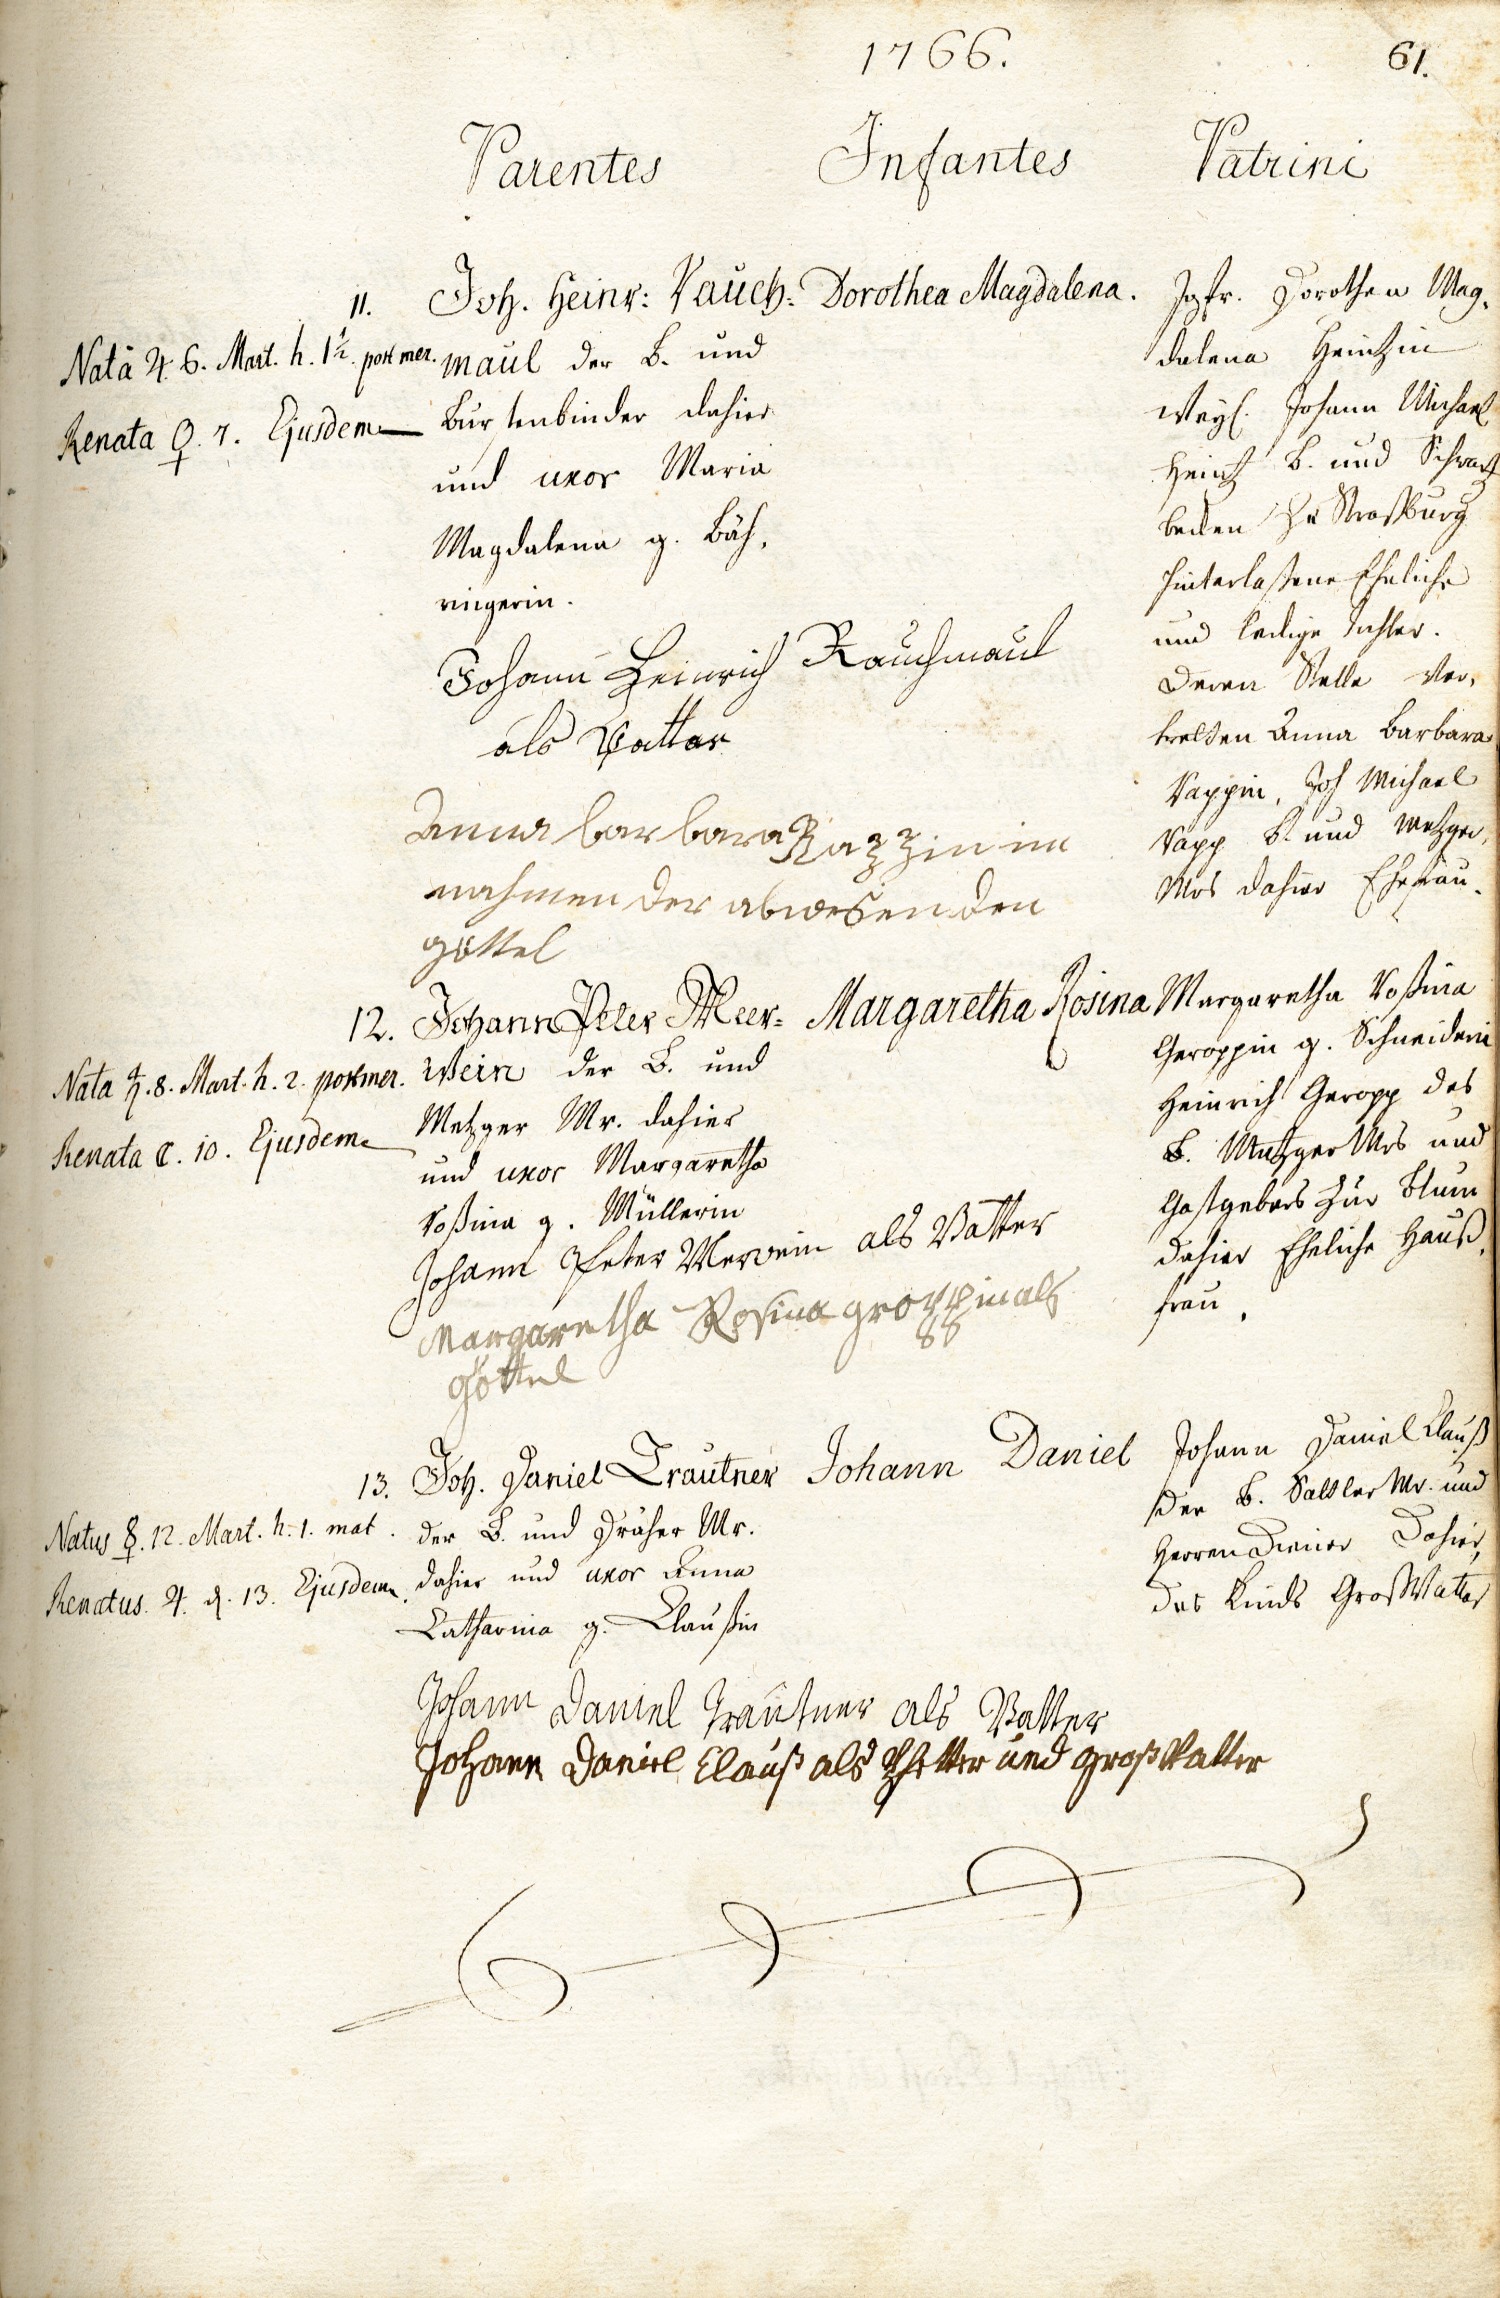 1766.
61.
Parentes
Infantes
Patrini
11.
Nata ♃ 6. Mart. h. 1½. post mer.
Renata ♀. 7. Ejusdem
Joh. Heinr: Rauch-
maul der B. und
Bürstenbinder dahier
und uxor Maria
Magdalena g. Bäh,
ringerin.
Dorothea Magdalena.
Jgfr. Dorothea Mag,
dalena Heintzin
weyl. Johann Michael
Heintz B. und Schwartz
becken zu Straßburg
hinterlaßene Eheliche
und ledige Tochter.
Deren Stelle ver,
tretten Anna Barbara
Rappin, Joh Michael
Rapp B. und Metzger,
Mrs dahier Ehefrau.
Johann Heinrich Rauchmaul
als Vatter
Anna barbara Rappin im
nahmen der abwesenden
göttel
12.
Nata ♄. 8. Mart. h. 2. post mer.
Renata ☾. 10. Ejusdem
Johann Peter Meer-
wein der B. und
Metzger Mr. dahier
und uxor Margaretha
Roßina g. Müllerin
Margaretha Rosina
Margaretha Roßina
Geroppin g. Schneiderin
Heinrich Geropp des
B. Metzger Mrs und
Gastgebers zur Blum
dahier Eheliche Hauß,
frau.
Johann Peter Merwein als Vatter
Margaretha Rosina groppin als
göttel
13.
Natus ☿. 12. Mart. h. 1. mat.
Renatus. ♃. d. 13. Ejusdem
Joh. Daniel Trautner
der B. und Dräher Mr.
dahier und uxor Anna
Catharina g. Claußin
Johann Daniel
Johann Daniel Clauß
der B. Sattler Mr. und
Herren Diener Dahier,
des Kinds GroßVatter
Johann Daniel Trautner als Vatter
Johann Daniel Clauß als Pfetter und großVatter